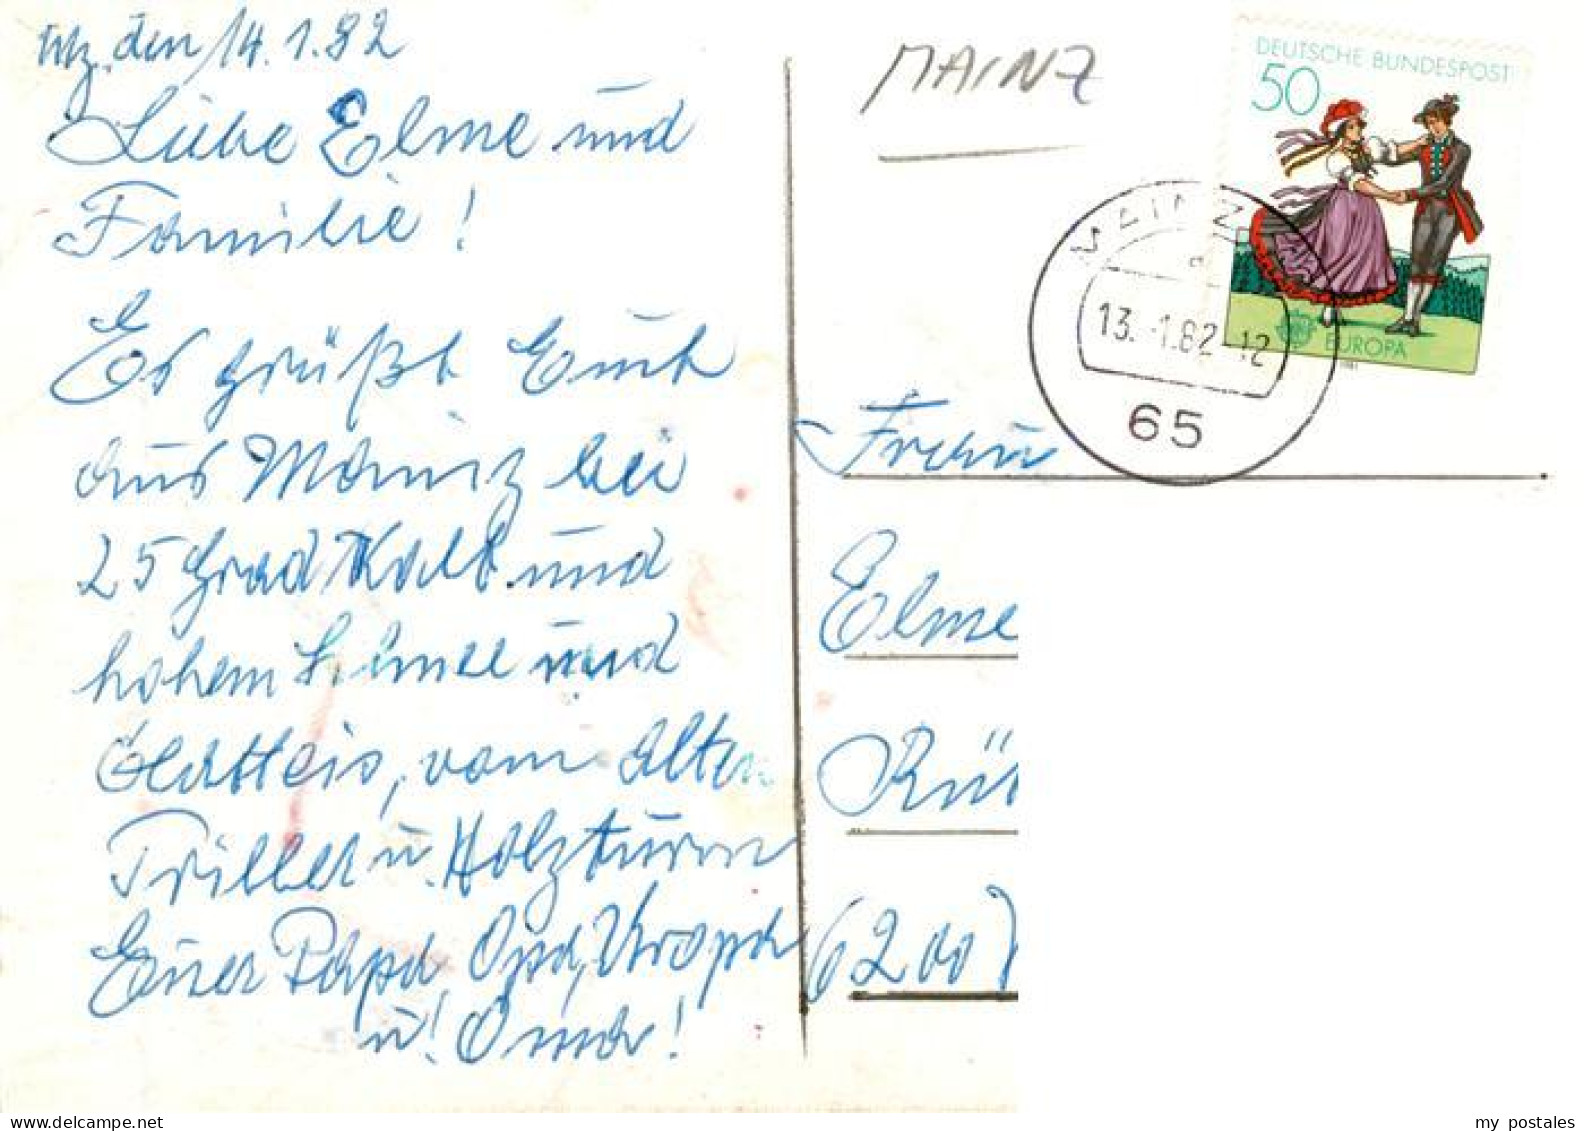 Mz. den 14.1.82
Liebe Elme und
Familie!
Es grüßt Euch
aus Mainz bei
25 Grad Kalt und
hohem und
Glatteis, vom Alten
Triller u. Holzturm
Euer Papa, Opa, Uropa
u! Oma!
MAINZ
DEUTSCHE BUNDESPOST
50
EUROPA
1981
MAINZ
13.-1.82-12
65
Frau
Elme
Rü
(6200)
my postales